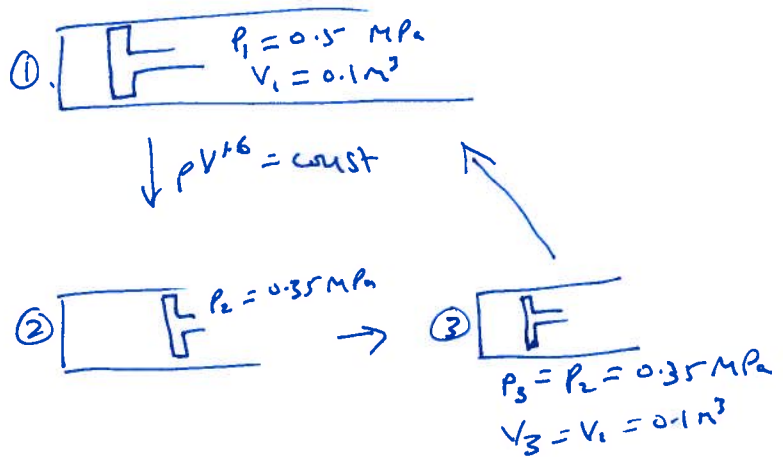 ①
P₁ = 0.5 MPa
V₁ = 0.1 m³
pV¹·⁶ = const
②
P₂ = 0.35 MPa
③
P₃ = P₂ = 0.35 MPa
V₃ = V₁ = 0.1 m³